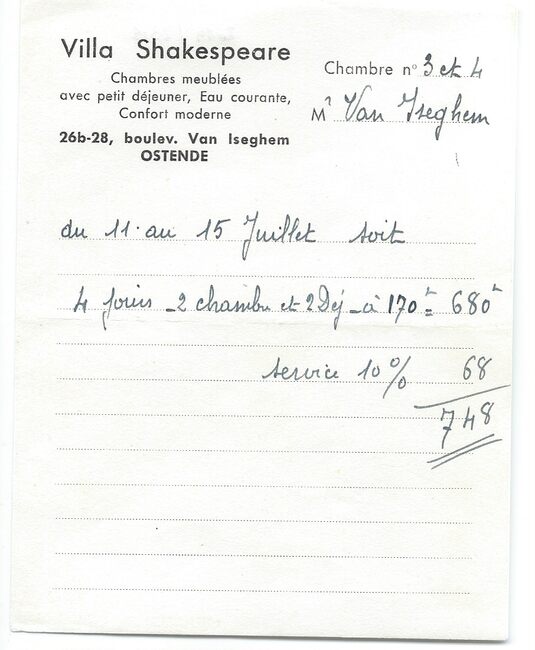 Villa Shakespeare
Chambres meublées
avec petit déjeuner, Eau courante,
Confort moderne
26b-28, boulev. Van Iseghem
OSTENDE
Chambre n° 3 et 4
Mr Van Iseghem
du 11 au 15 Juillet soit
4 jours - 2 chambre et 2 Déj - à 170 fr = 680 fr
service 10% 68
748